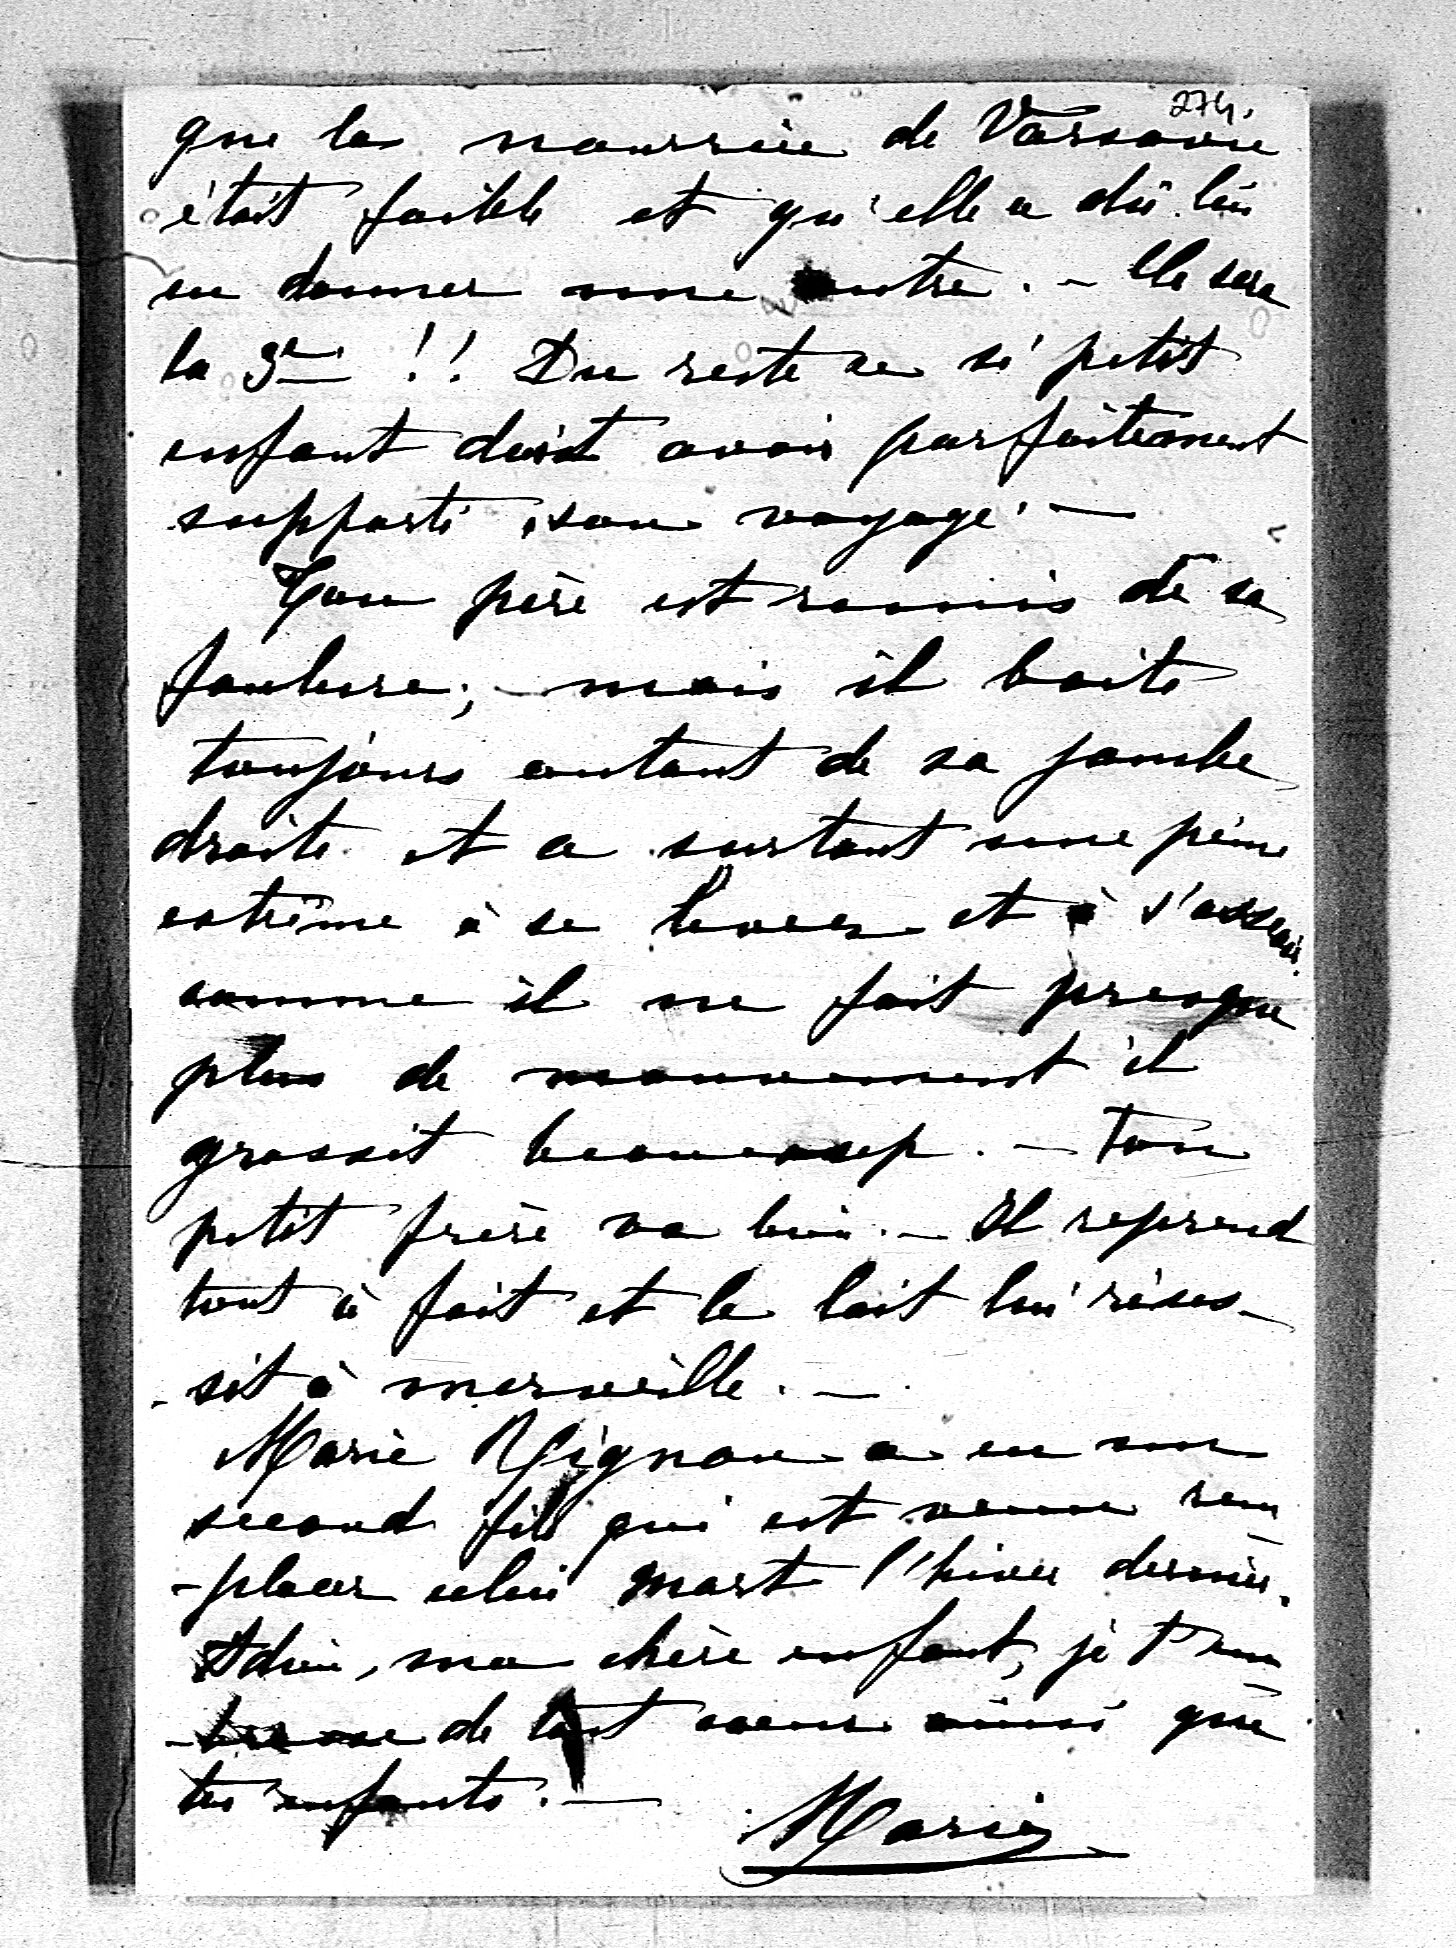 274.
que la nourrice de Varsovie
était faible et qu'elle a dû lui
en donner une autre. - Ce sera
la 3e !! Du reste ce si petit
enfant doit avoir parfaitement
supporté son voyage. -
Ton père est remis de sa
foulure; - mais il boite
toujours autant de sa jambe
droite et a surtout une peine
extrême à se lever et à s'asseoir.
comme il ne fait presque
plus de mouvement il
grossit beaucoup. - Ton
petit frère va bien. - Il reprend
tout à fait et le lait lui réus-
-sit à merveille. -
Marie Mignon a eu un
second fils qui est venu rem
-placer celui mort l'hiver dernier.
Adieu, ma chère enfant, je t'em
-brasse de tout coeur ainsi que
tes enfants. -
Marie